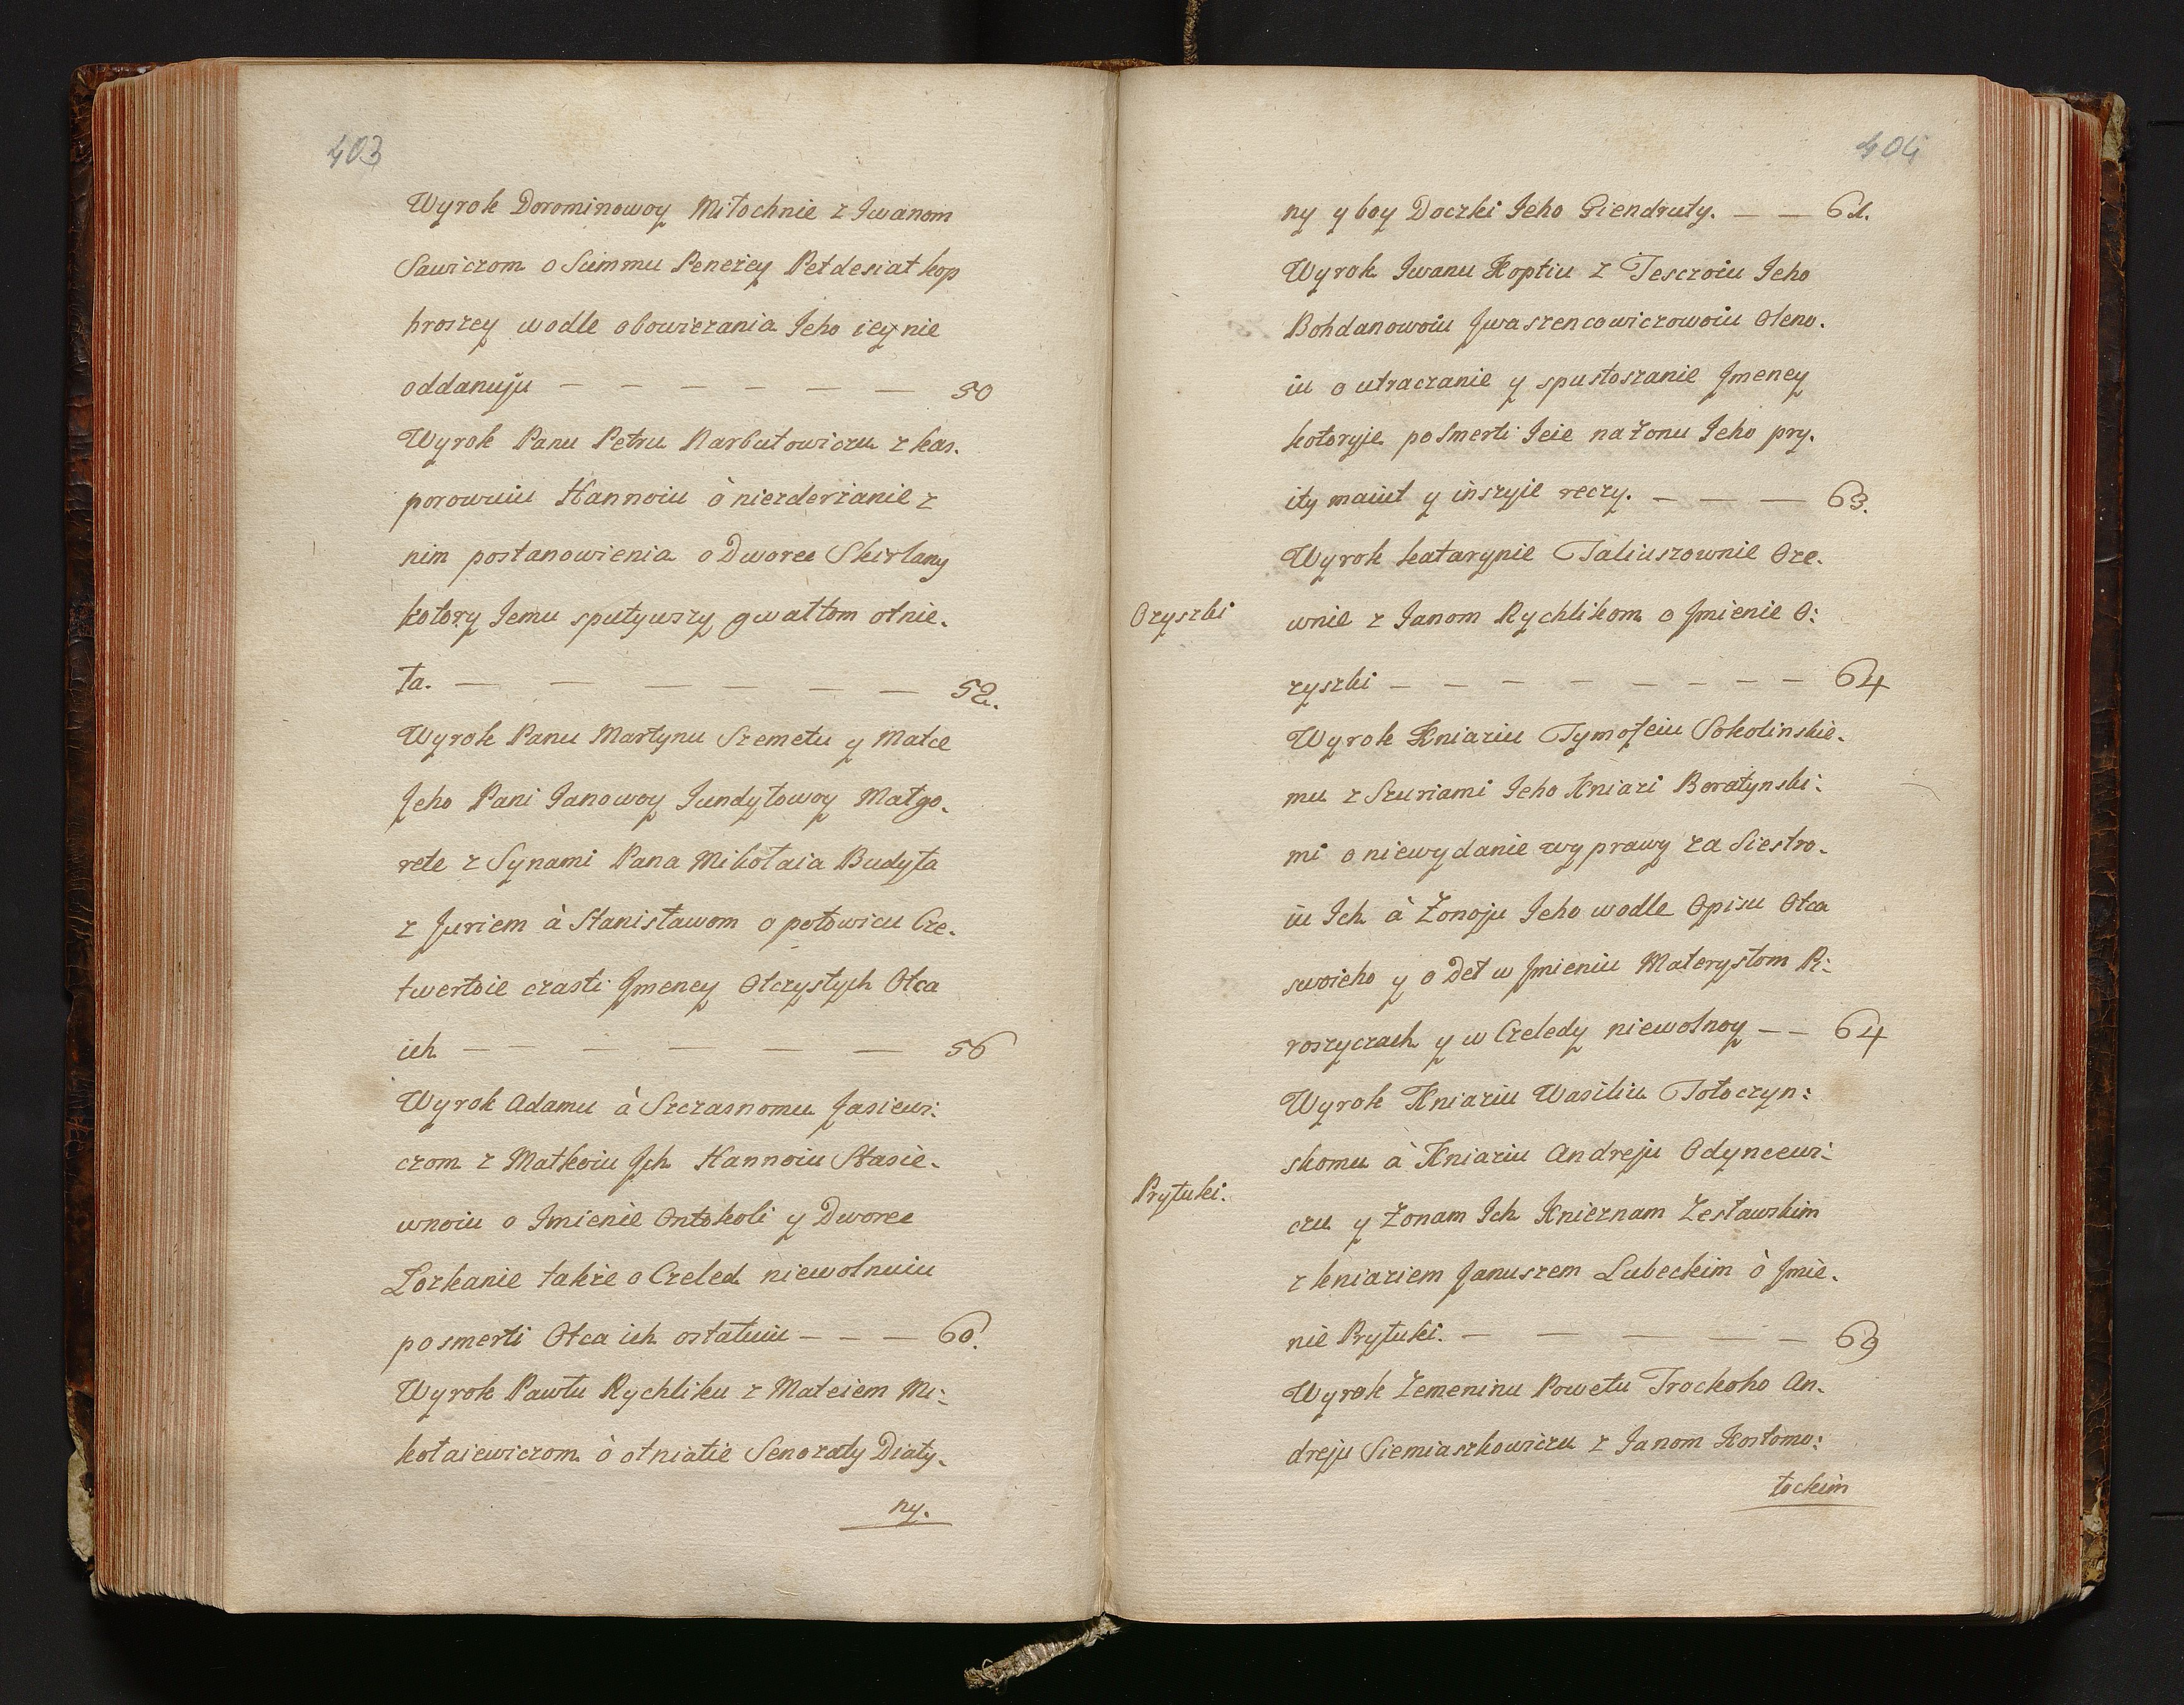 403
Wyrok Dorominowoy Miłochnie z Iwanom
Sawiczom o Summu Peneżey Petdesiat kop
hroszey wodle obowiezania Jeho iey nie
oddanuju — — — — — — 50
Wyrok Panu Petru Narbutowiczu z kas.
porownu Hannoiu ò niezderżanie z
nim postanowienia o Dworec Skirlany
kotory Jemu spuływszy gwałtom otnie.
ła. — — — — — — 52.
Wyrok Panu Martynu Szemetu y Matce
Jeho Pani Janowoy Jundyłowoy Małgo.
rete z Synami Pana Mikołaia Budyła
z Juriem à Stanisławom o połowicu Cze.
twertoie czasti Jmeney Otczystych Otca
ich — — — — — — 56
Wyrok Adamu à Szczasnomu Jasiewi:
czom z Matkoiu Jch Hannoiu Stasie.
wnoiu o Imienie Ontokoli y Dworec
Łozkanie także o Czeled niewolnuiu
posmerti Otca ich ostałuiu — — — 60.
Wyrok Pawłu Rychliku z Mateiem Mi:
kołaiewiczom ò otniatie Senozaty Diaty.
ny.
404
ny y boy Doczki Jeho Giendruty. — — 61.
Wyrok Iwanu Koptiu z Tesczoiu Jeho
Bohdanowoiu Jwaszencowiczowoiu Oleno.
iu o utraczanie y spustoszanie Jmeney
kotoryje posmerti Jeie na żonu Jeho pry.
ity maiut y inszyie reczy. — — — 63.
Wyrok katarynie Taliuszownie Oze.
Ozyszki
wnie z Janom Rychlikom o Jmienie O:
zyszki — — — — — — — — 64
Wyrok Kniaziu Tymofeiu Sokolinskie.
mu z Szuriami Jeho Kniazi Boratynski:
mi o niewydanie wyprawy za Siestro.
iu Jch à Żonoju Jeho wodle Opisu Otca
swoieho y o Det w Jmieniu Materystom Pi:
roszyczach y w Czeledy niewolnoy — — 64
Wyrok Kniaziu Wasiliu Tołoczyn:
skomu à Kniaziu Andreju Odyncewi:
Prytuki.
czu y Żonam Ich Knieznam Żesławskim
z kniaziem Januszem Lubeckim ò Jmie.
nie Prytuki. — — — — — 69
Wyrok Żemeninu Powetu Trockoho An.
dreju Siemiaszkowiczu z Janom Kostomo:
łockim